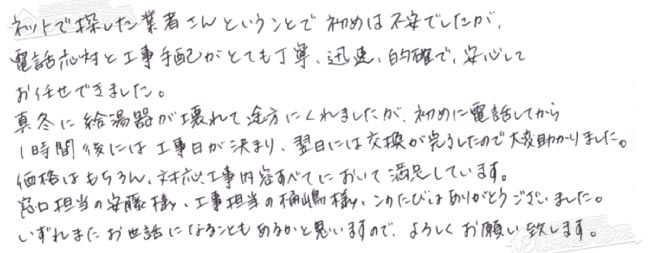 ネットで探した業者さんということで初めは不安でしたが、
電話応対と工事手配がとても丁寧、迅速、的確で、安心して
お任せできました。
真冬に給湯器が壊れて途方にくれましたが、初めに電話してから
1時間後には工事日が決まり、翌日には交換が完了したので大変助かりました。
価格はもちろん、対応、工事内容すべてにおいて満足しています。
窓口担当の安藤様、工事担当の桶嶋様、このたびはありがとうございました。
いずれまたお世話になることもあるかと思いますので、よろしくお願い致します。